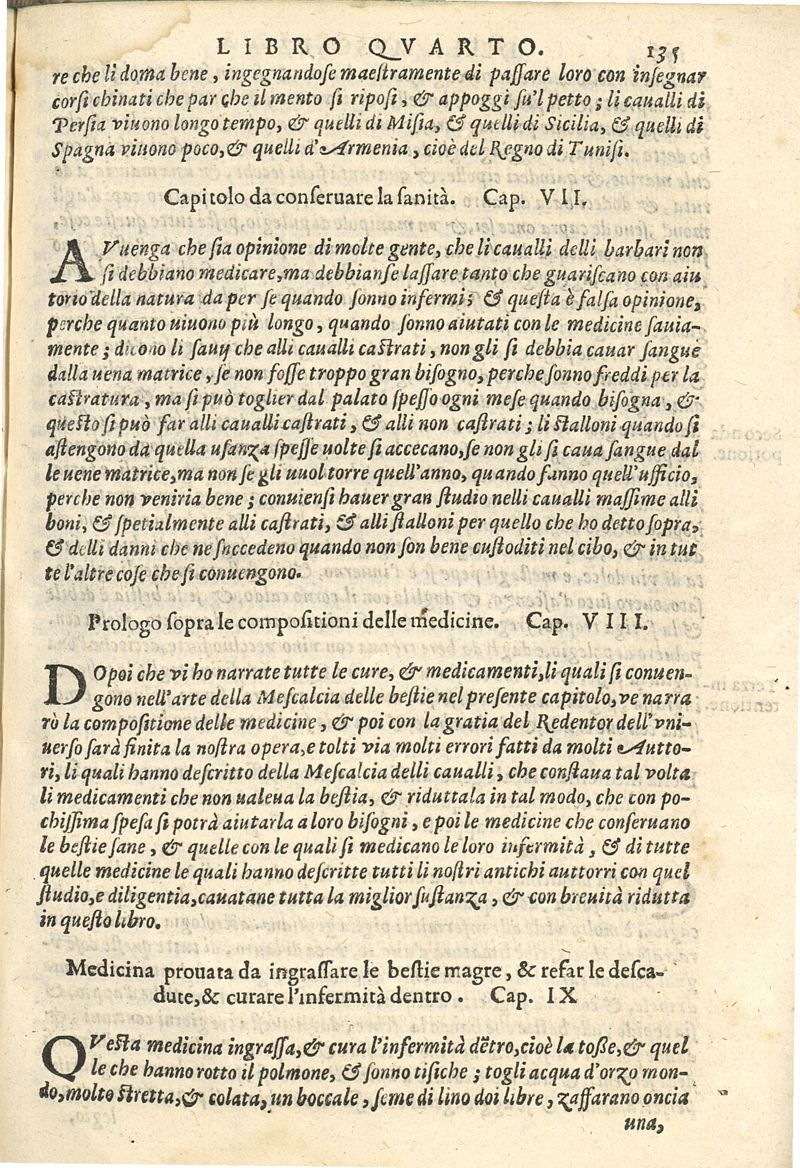 LIBRO QVARTO. 135
re che li doma bene, ingegnandose maestramente di passare loro con insegnar
corsi chinati che par che il mento si riposi, & appoggi su'l petto; li caualli di
Persia viuono longo tempo, & quelli di Misia, & quelli di Sicilia, & quelli di
Spagna viuono poco, & quelli d'Armenia, cioè del Regno di Tunisi.
Capitolo da conseruare la sanità. Cap. VII.
AVuenga che sia opinione di molte gente, che li caualli delli barbari non
si debbiano medicare, ma debbianse lassare tanto che guariscano con aiu
torio della natura da per se quando sonno infermi; & questa è falsa opinione,
perche quanto uiuono più longo, quando sonno aiutati con le medicine sauia-
mente; dicono li sauij che alli caualli castrati, non gli si debbia cauar sangue
dalla uena matrice, se non fosse troppo gran bisogno, perche sonno freddi per la
castratura, ma si può toglier dal palato spesso ogni mese quando bisogna, &
questo si può far alli caualli castrati, & alli non castrati; li stalloni quando si
astengono da quella usanza spesse uolte si accecano, se non gli si caua sangue dal
le uene matrice, ma non se gli uuol torre quell'anno, quando fanno quell'ufficio,
perche non veniria bene; conuiensi hauer gran studio nelli caualli massime alli
boni, & spetialmente alli castrati, & alli stalloni per quello che ho detto sopra,
& delli danni che ne succedeno quando non son bene custoditi nel cibo, & in tut
te l'altre cose che si conuengono.
Prologo sopra le compositioni delle medicine. Cap. VIII.
DOpoi che vi ho narrate tutte le cure, & medicamenti, li quali si conuen-
gono nell'arte della Mescalcia delle bestie nel presente capitolo, ve narra
rò la compositione delle medicine, & poi con la gratia del Redentor dell'vni-
uerso sarà finita la nostra opera, e tolti via molti errori fatti da molti Autto-
ri, li quali hanno descritto della Mescalcia delli caualli, che constaua tal volta
li medicamenti che non ualeua la bestia, & riduttala in tal modo, che con po-
chissima spesa si potrà aiutarla a loro bisogni, e poi le medicine che conseruano
le bestie sane, & quelle con le quali si medicano le loro infermità, & di tutte
quelle medicine le quali hanno descritte tutti li nostri antichi auttorri con quel
studio, e diligentia, cauatane tutta la miglior sustanza, & con breuità ridutta
in questo libro.
Medicina prouata da ingrassare le bestie magre, & refar le desca-
dute, & curare l'infermità dentro. Cap. IX
QVesta medicina ingrassa, & cura l'infermità dētro, cioè la tosse, & quel
le che hanno rotto il polmone, & sonno tisiche; togli acqua d'orzo mon-
do, molto stretta, & colata, un boccale, seme di lino doi libre, zaffarano oncia
una,